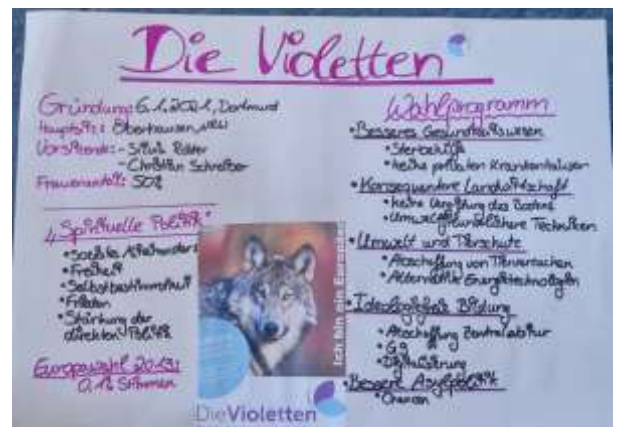 Die Violetten
Gründung: 6.1.2001, Dortmund
Hauptsitz: Oberhausen, NRW
Vorsitzende: - Silvia
- Christian Schreiber
Frauenanteil: 50%
"Spirituelle Politik"
• Soziales Miteinander
• Freiheit
• Selbstbestimmtheit
• Frieden
• Stärkung der
direkten Politik
Europawahl
0,1% Stimmen
Ich bin ein Europäer
Die Violetten
Wahlprogramm
• Besseres Gesundheitswesen
• Sterbehilfe
• keine privaten Krankenhäuser
• Konsequentere Landwirtschaft
• keine Vergiftung des Bodens
• Umweltfreundlichere Techniken
• Umwelt und Tierschutz
• Abschaffung von Tierversuchen
• Alternative Energietechnologien
• Ideologiefreie Bildung
• Abschaffung Zentralabitur
• G9
• Digitalisierung
• Bessere Asylpolitik
• Chancen